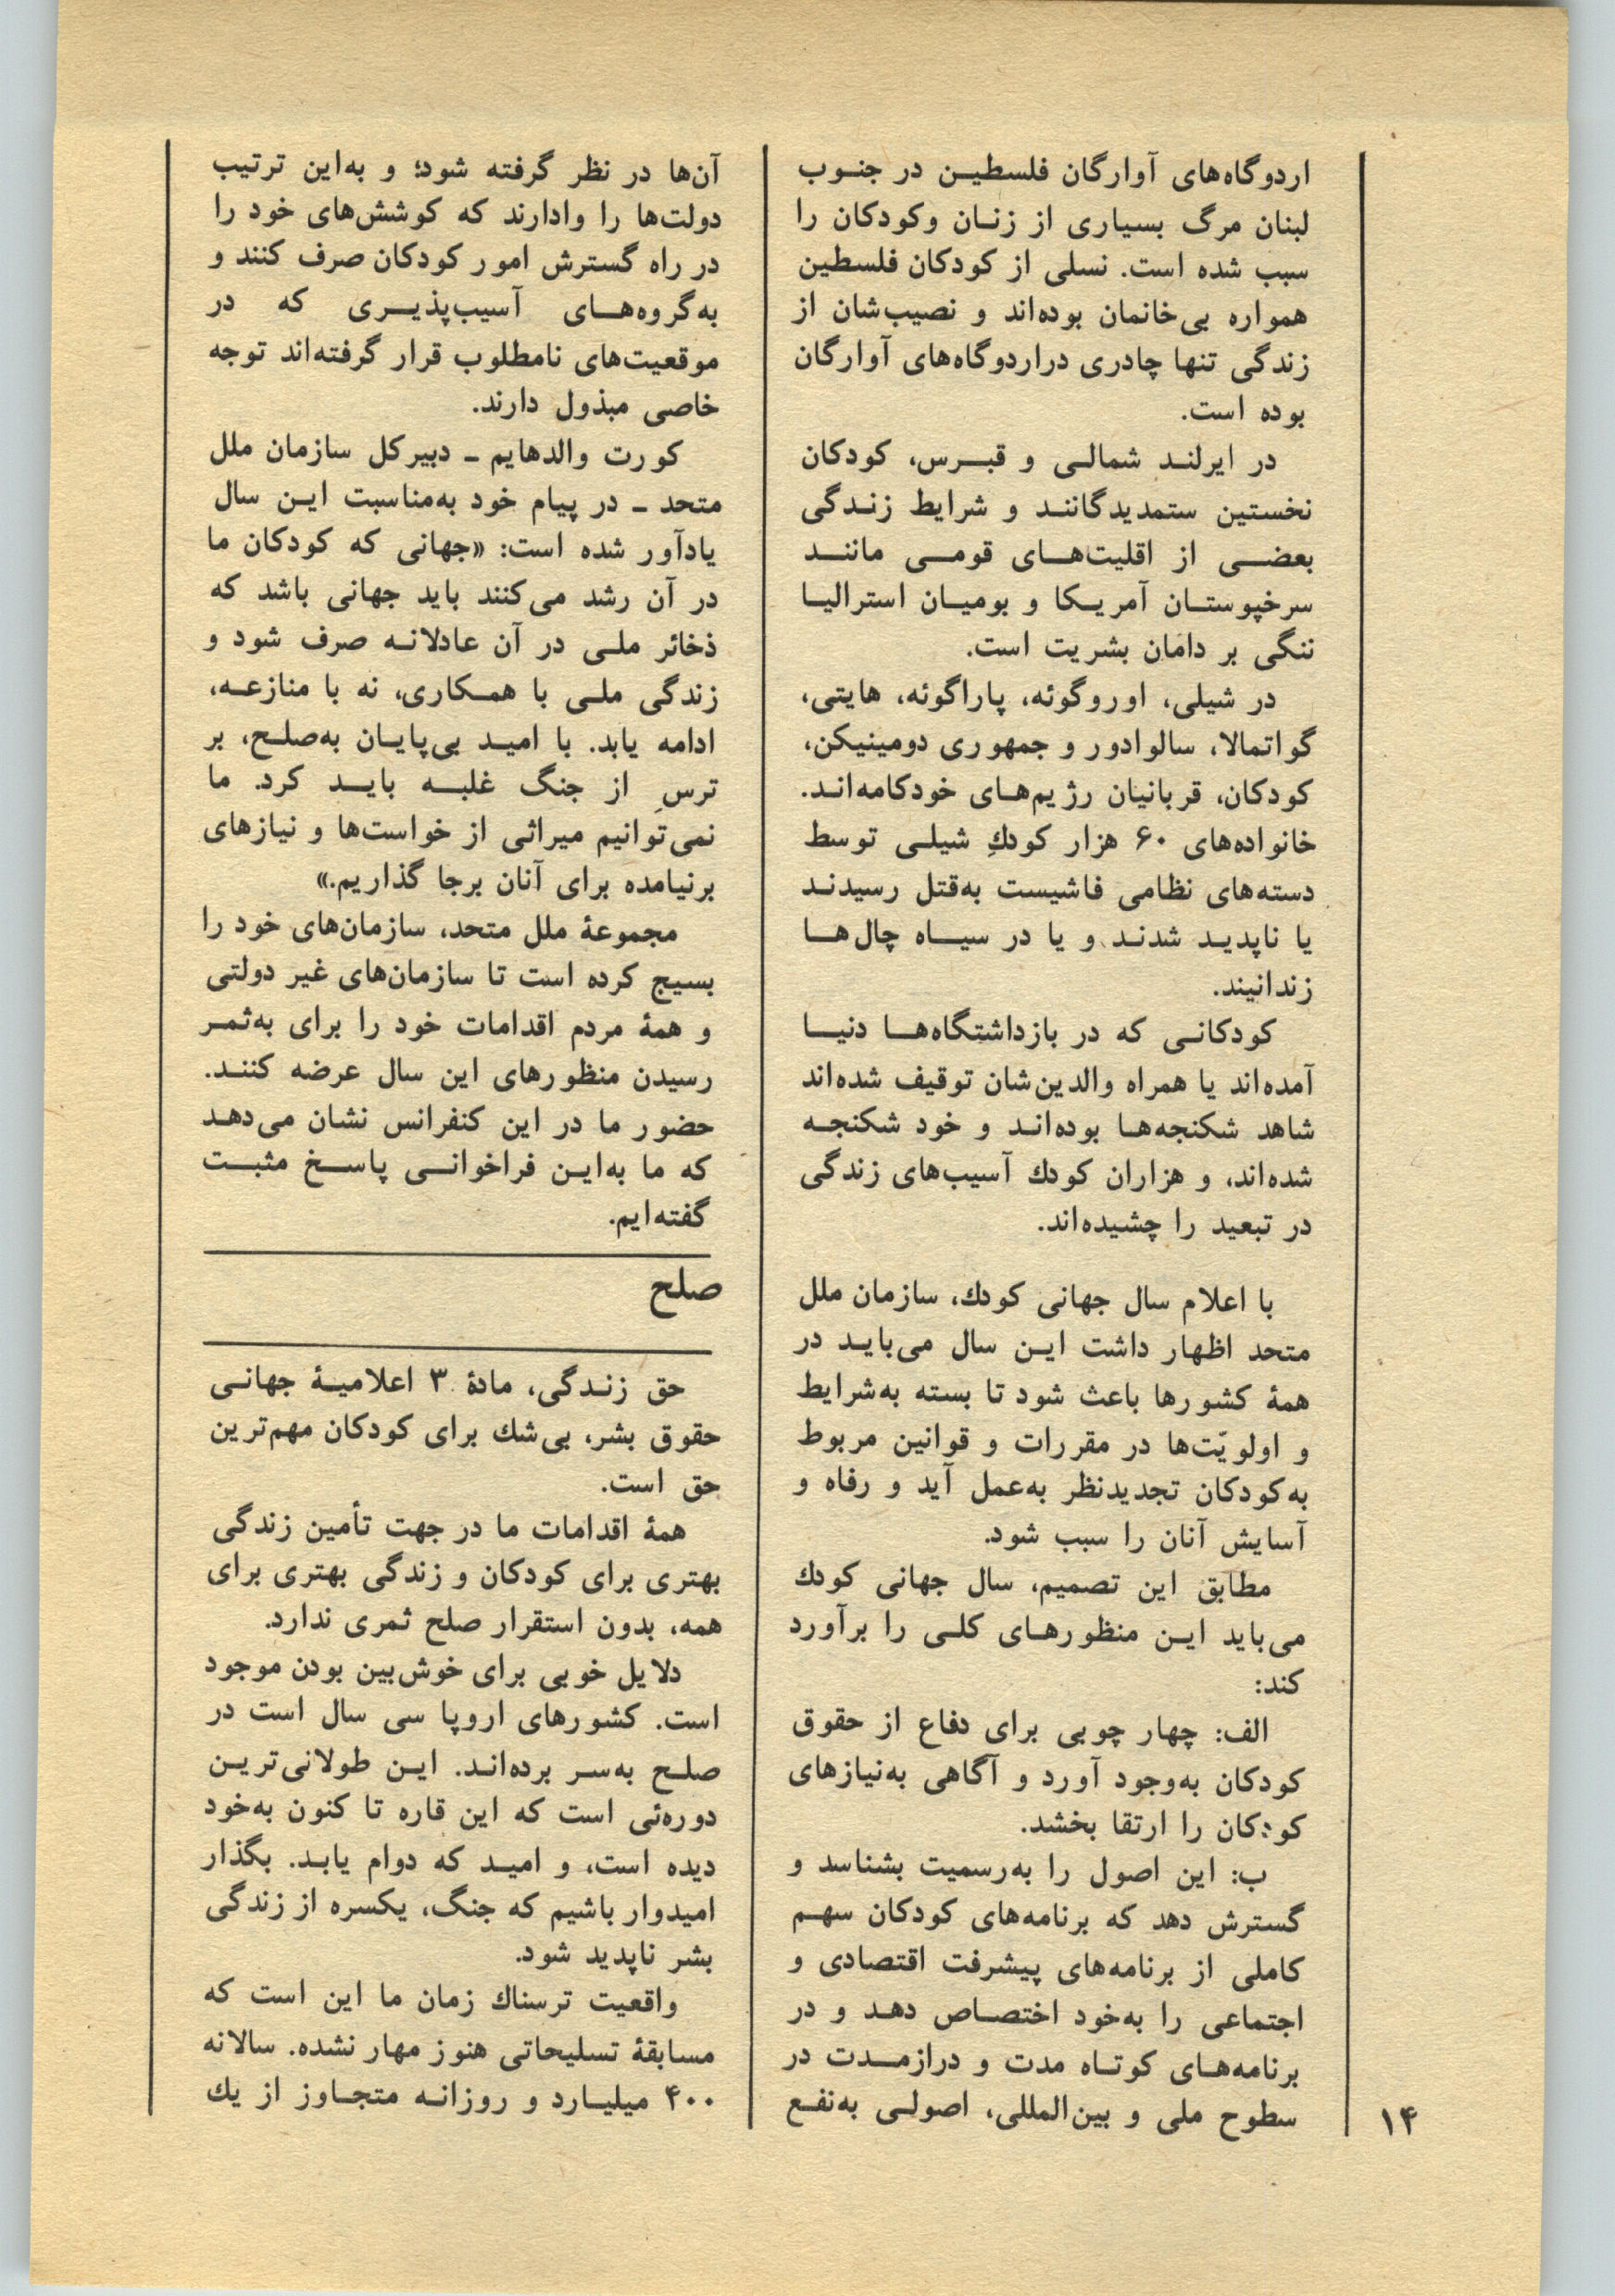 اردوگاه‌های آوارگان فلسطیـن در جنـوب
لبنان مرگ بسیاری از زنـان وکودکان را
سبب شده است. نسلی از کودکان فلسطین
همواره بی‌خانمان بوده‌اند و نصیب‌شان از
زندگی تنها چادری دراردوگاه‌های آوارگان
بوده است.
در ایرلنـد شمالـی و قبـرس، کودکان
نخستین ستمدیدگاننـد و شرایط زنـدگی
بعضـی از اقلیت‌هـای قومـی ماننـد
سرخپوستـان آمریـکا و بومیـان استرالیـا
ننگی بر دامان بشریت است.
در شیلی، اوروگوئه، پاراگوئه، هایتی،
گواتمالا، سالوادور و جمهوری دومینیکن،
کودکان، قربانیان رژیم‌هـای خودکامه‌انـد.
خانواده‌های ۶۰ هزار کودكِ شیلـی توسط
دسته‌های نظامی فاشیست به‌قتل رسیدنـد
یا ناپدیـد شدنـد و یا در سیـاه چال‌هـا
زندانیند.
کودکانـی که در بازداشتگاه‌هـا دنیـا
آمده‌اند یا همراه والدین‌شان توقیف شده‌اند
شاهد شکنجه‌هـا بوده‌انـد و خود شکنجـه
شده‌اند، و هزاران کودك آسیب‌های زندگی
در تبعید را چشیده‌اند.
با اعلام سال جهانی کودك، سازمان ملل
متحد اظهار داشت ایـن سال می‌بایـد در
همهٔ کشورها باعث شود تا بسته به‌شرایط
و اولویّت‌ها در مقررات و قوانین مربوط
به‌کودکان تجدیدنظر به‌عمل آید و رفاه و
آسایش آنان را سبب شود.
مطابق این تصمیم، سال جهانی کودك
می‌باید ایـن منظورهـای کلـی را برآورد
کند:
الف: چهار چوبی برای دفاع از حقوق
کودکان به‌وجود آورد و آگاهی به‌نیازهای
کودکان را ارتقا بخشد.
ب: این اصول را به‌رسمیت بشناسد و
گسترش دهد که برنامه‌های کودکان سهـم
کاملی از برنامه‌های پیشرفت اقتصادی و
اجتماعی را به‌خود اختصـاص دهـد و در
برنامه‌هـای کوتـاه مدت و درازمـدت در
سطوح ملی و بین‌المللی، اصولـی به‌نفـع
آن‌ها در نظر گرفته شود؛ و به‌این ترتیب
دولت‌ها را وادارند که کوشش‌های خود را
در راه گسترش امور کودکان صرف کنند و
به‌گروه‌هـای آسیب‌پذیـری که در
موقعیت‌های نامطلوب قرار گرفته‌اند توجه
خاصی مبذول دارند.
کورت والدهایم ـ دبیرکل سازمان ملل
متحد ـ در پیام خود به‌مناسبت ایـن سال
یادآور شده است: «جهانی که کودکان ما
در آن رشد می‌کنند باید جهانی باشد که
ذخائر ملـی در آن عادلانـه صرف شود و
زندگی ملـی با همـکاری، نه با منازعـه،
ادامه یابد. با امیـد بی‌پایـان به‌صلـح، بر
ترسِ از جنگ غلبـه بایـد کرد. ما
نمی‌توانیم میراثی از خواست‌ها و نیازهای
برنیامده برای آنان برجا گذاریم.»
مجموعهٔ ملل متحد، سازمان‌های خود را
بسیج کرده است تا سازمان‌های غیر دولتی
و همهٔ مردم اقدامات خود را برای به‌ثمـر
رسیدن منظورهای این سال عرضه کننـد.
حضور ما در این کنفرانس نشان می‌دهـد
که ما به‌ایـن فراخوانـی پاسـخ مثبـت
گفته‌ایم.
صلح
حق زنـدگی، مادهٔ ۳ اعلامیـهٔ جهانـی
حقوق بشر، بی‌شك برای کودکان مهم‌ترین
حق است.
همهٔ اقدامات ما در جهت تأمین زندگی
بهتری برای کودکان و زندگی بهتری برای
همه، بدون استقرار صلح ثمری ندارد.
دلایل خوبی برای خوش‌بین بودن موجود
است. کشورهای اروپا سی سال است در
صلـح به‌سـر برده‌انـد. ایـن طولانی‌تریـن
دوره‌ئی است که این قاره تا کنون به‌خود
دیده است، و امیـد که دوام یابـد. بگذار
امیدوار باشیم که جنگ، یکسره از زندگی
بشر ناپدید شود.
واقعیت ترسناك زمان ما این است که
مسابقهٔ تسلیحاتی هنوز مهار نشده. سالانه
۴۰۰ میلیـارد و روزانـه متجـاوز از یك
۱۴